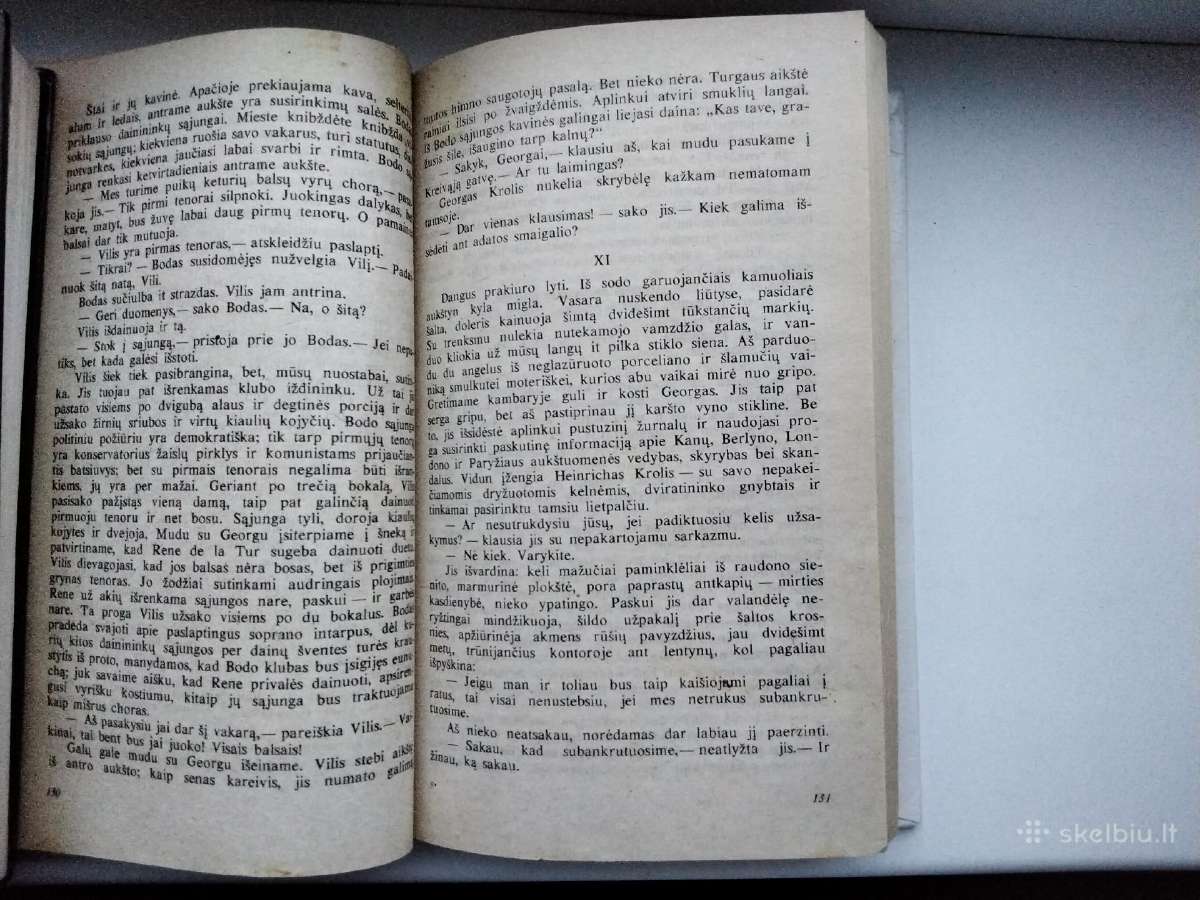 Štai ir jų kavinė. Apačioje prekiaujama kava,
alum ir ledais, antrame aukšte yra susirinkimų salės. Bodo
priklauso dainininkų sąjungai. Mieste knibždėte knibžda
sokių sąjungų; kiekviena ruošia savo vakarus, turi statutus,
notvarkes, kiekviena jaučiasi labai svarbi ir rimta. Bodo są-
junga renkasi ketvirtadieniais antrame aukšte.
— Mes turime puikų keturių balsų vyrų chorą,— pasa-
koja jis.— Tik pirmi tenorai silpnoki. Juokingas dalykas, bet
kare, matyt, bus žuvę labai daug pirmų tenorų. O pamainos
balsai dar tik mutuoja.
— Vilis yra pirmas tenoras,— atskleidžiu paslaptį.
— Tikrai? — Bodas susidomėjęs nužvelgia Vilį.— Padai-
nuok šitą natą, Vili.
Bodas sučiulba it strazdas. Vilis jam antrina.
— Geri duomenys,— sako Bodas.— Na, o šitą?
Vilis išdainuoja ir tą.
— Stok į sąjungą,— pristoja prie jo Bodas.— Jei nepa-
tiks, bet kada galėsi išstoti.
Vilis šiek tiek pasibrangina, bet, mūsų nuostabai, sutin-
ka. Jis tuojau pat išrenkamas klubo iždininku. Už tai jis
pastato visiems po dvigubą alaus ir degtinės porciją ir dar
užsako žirnių sriubos ir virtų kiaulių kojyčių. Bodo sąjunga
politiniu požiūriu yra demokratiška; tik tarp pirmųjų tenorų
yra konservatorius žaislų pirklys ir komunistams prijaučian-
tis batsiuvys; bet su pirmais tenorais negalima būti išran-
kiems, jų yra per mažai. Geriant po trečią bokalą, Vilis
pasisako pažįstąs vieną damą, taip pat galinčią dainuoti
pirmuoju tenoru ir net bosu. Sąjunga tyli, doroja kiaulių
kojytes ir dvejoja. Mudu su Georgu įsiterpiame į šneką ir
patvirtiname, kad Rene de la Tur sugeba dainuoti duetu.
Vilis dievagojasi, kad jos balsas nėra bosas, bet iš prigimties
grynas tenoras. Jo žodžiai sutinkami audringais plojimais.
Rene už akių išrenkama sąjungos nare, paskui — ir garbės
nare. Ta proga Vilis užsako visiems po du bokalus. Bodas
pradeda svajoti apie paslaptingus soprano intarpus, dėl ku-
rių kitos dainininkų sąjungos per dainų šventes turės kraus-
tytis iš proto, manydamos, kad Bodo klubas bus įsigijęs eunu-
chą; juk savaime aišku, kad Rene privalės dainuoti, apsiren-
gusi vyrišku kostiumu, kitaip jų sąjunga bus traktuojama
kaip mišrus choras.
— Aš pasakysiu jai dar šį vakarą,— pareiškia Vilis.— Va-
kinai, tai bent bus jai juoko! Visais balsais!
Galų gale mudu su Georgu išeiname. Vilis stebi aikštę
iš antro aukšto; kaip senas kareivis, jis numato galimą
130
tautos himno saugotojų pasalą. Bet nieko nėra. Turgaus aikštė
ramiai ilsisi po žvaigždėmis. Aplinkui atviri smuklių langai.
Iš Bodo sąjungos kavinės galingai liejasi daina: „Kas tave, gra-
žusis šile, išaugino tarp kalnų?“
— Sakyk, Georgai,— klausiu aš, kai mudu pasukame į
Kreivąją gatvę.— Ar tu laimingas?
Georgas Krolis nukelia skrybėlę kažkam nematomam
tamsoje.
— Dar vienas klausimas! — sako jis.— Kiek galima iš-
sėdėti ant adatos smaigalio?
XI
Dangus prakiuro lyti. Iš sodo garuojančiais kamuoliais
aukštyn kyla migla. Vasara nuskendo liūtyse, pasidarė
šalta, doleris kainuoja šimtą dvidešimt tūkstančių markių.
Su trenksmu nulekia nutekamojo vamzdžio galas, ir van-
duo kliokia už mūsų langų it pilka stiklo siena. Aš parduo-
du du angelus iš neglazūruoto porceliano ir šlamučių vai-
niką smulkutei moteriškei, kurios abu vaikai mirė nuo gripo.
Gretimame kambaryje guli ir kosti Georgas. Jis taip pat
serga gripu, bet aš pastiprinau jį karšto vyno stikline. Be
to, jis išsidėstė aplinkui pustuzinį žurnalų ir naudojasi pro-
ga susirinkti paskutinę informaciją apie Kanų, Berlyno, Lon-
dono ir Paryžiaus aukštuomenės vedybas, skyrybas bei skan-
dalus. Vidun įžengia Heinrichas Krolis — su savo nepakei-
čiamomis dryžuotomis kelnėmis, dviratininko gnybtais ir
tinkamai pasirinktu tamsiu lietpalčiu.
— Ar nesutrukdysiu jūsų, jei padiktuosiu kelis užsa-
kymus? — klausia jis su nepakartojamu sarkazmu.
— Nė kiek. Varykite.
Jis išvardina: keli mažučiai paminklėliai iš raudono sie-
nito, marmurinė plokštė, pora paprastų antkapių — mirties
kasdienybė, nieko ypatingo. Paskui jis dar valandėlę ne-
ryžtingai mindžikuoja, šildo užpakalį prie šaltos kros-
nies, apžiūrinėja akmens rūšių pavyzdžius, jau dvidešimt
metų, trūnijančius kontoroje ant lentynų, kol pagaliau
išpyškina:
— Jeigu man ir toliau bus taip kaišiojami pagaliai į
ratus, tai visai nenustebsiu, jei mes netrukus subankru-
tuosime.
Aš nieko neatsakau, norėdamas dar labiau jį paerzinti.
— Sakau, kad subankrutuosime,— neatlyžta jis.— Ir
žinau, ką sakau.
131
skelbiu.lt